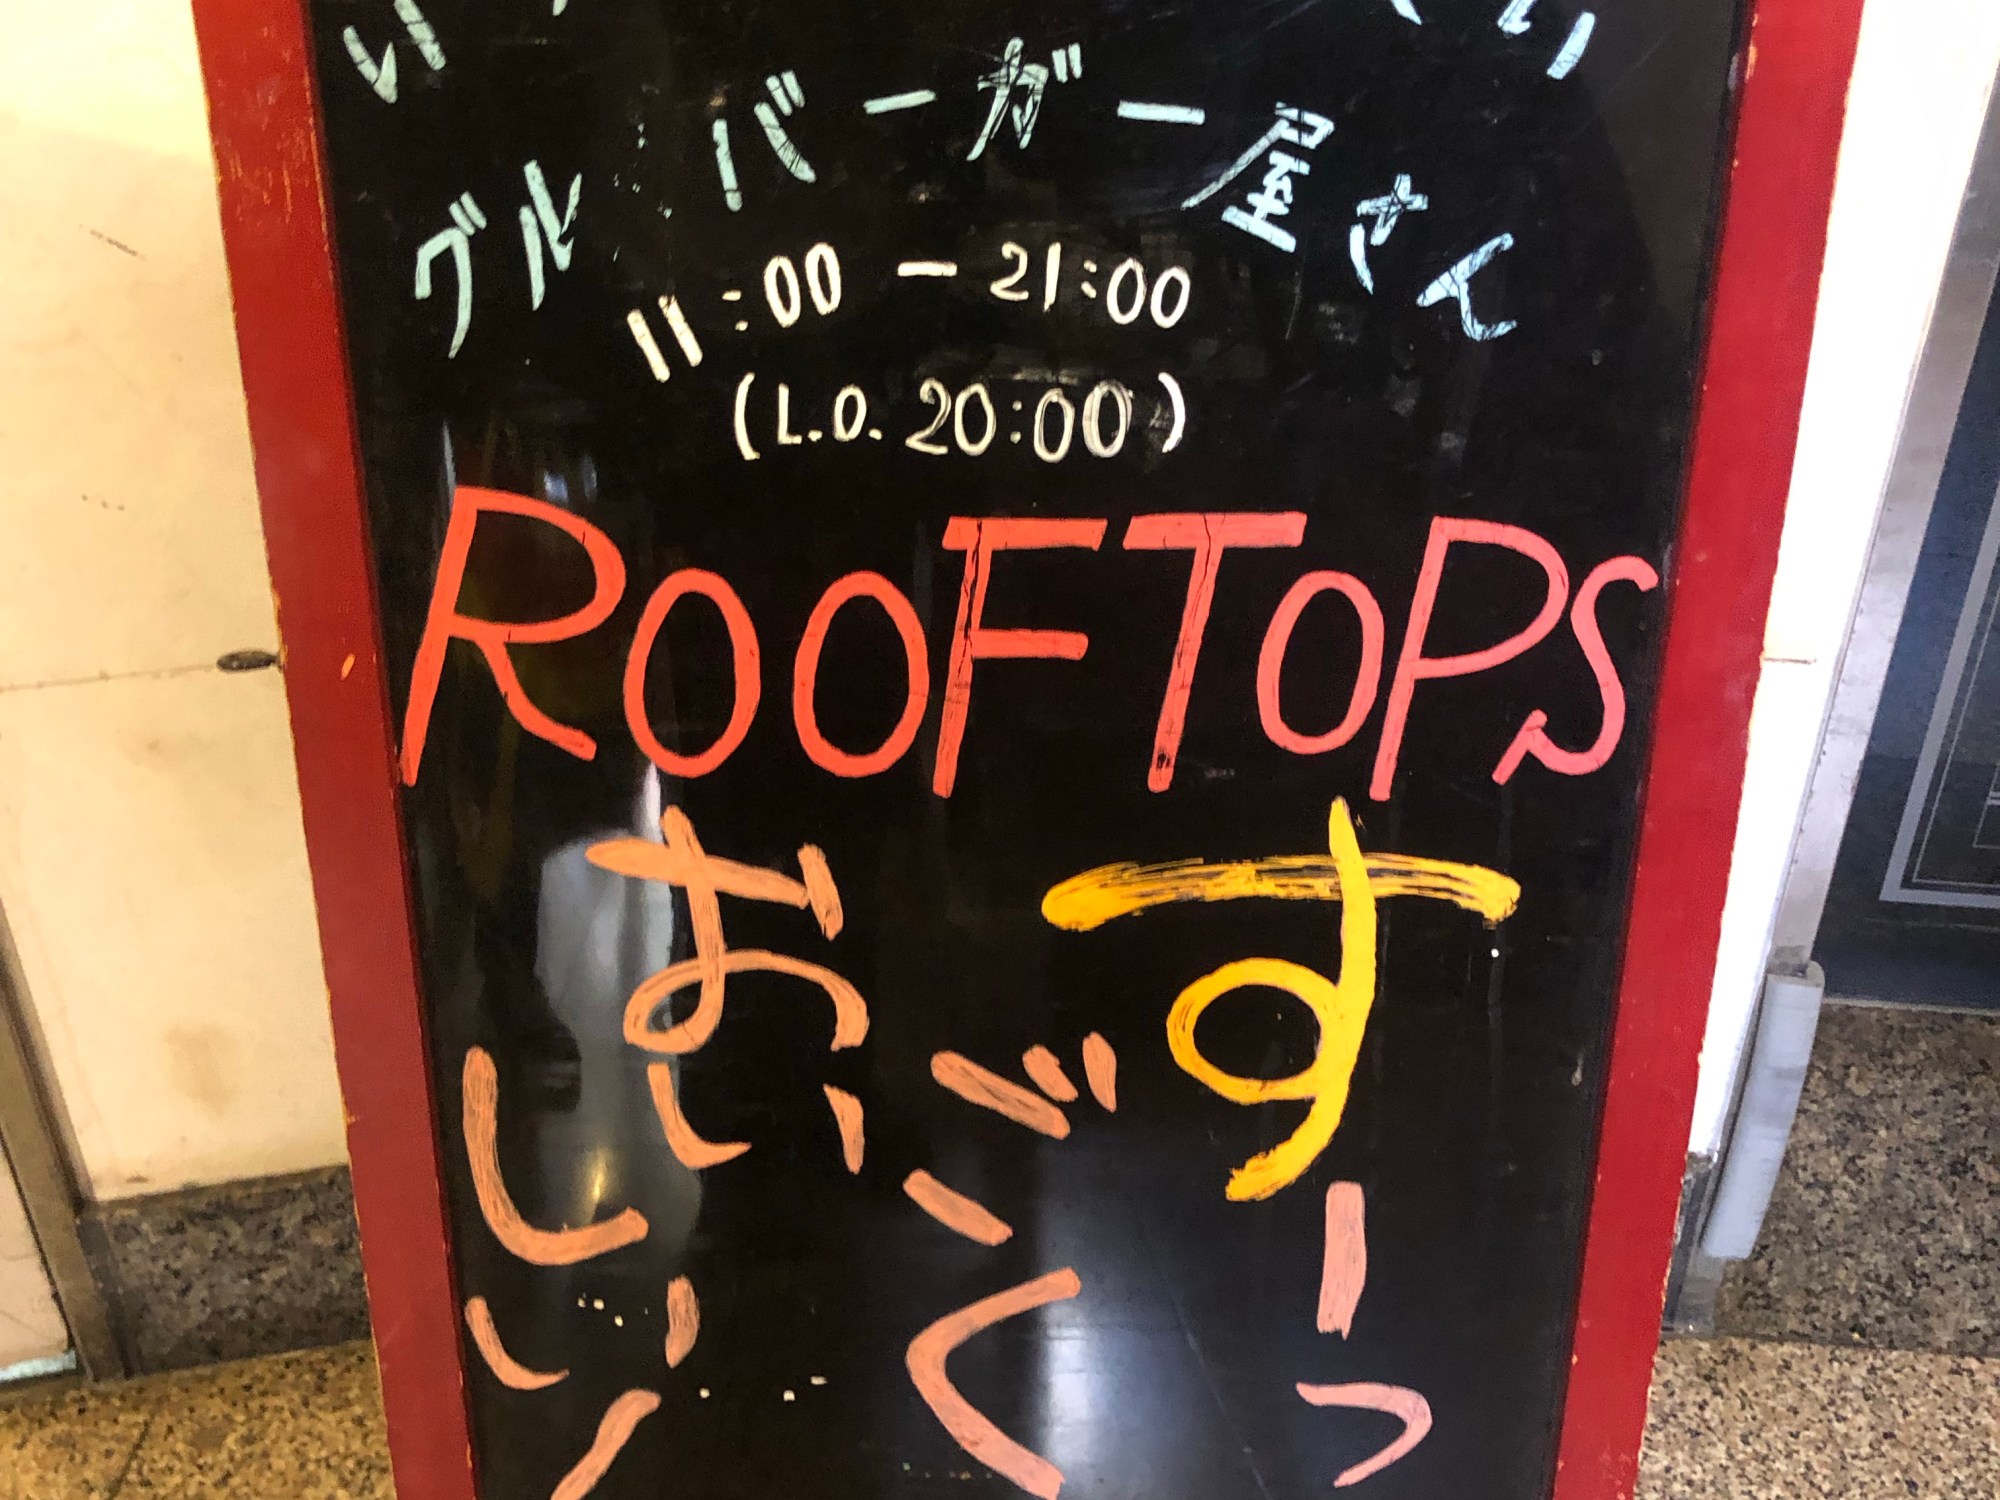 グル バーガー屋さん
11:00 - 21:00
(L.O. 20:00)
ROOFTOPS
すーっ
ごく
おいしい